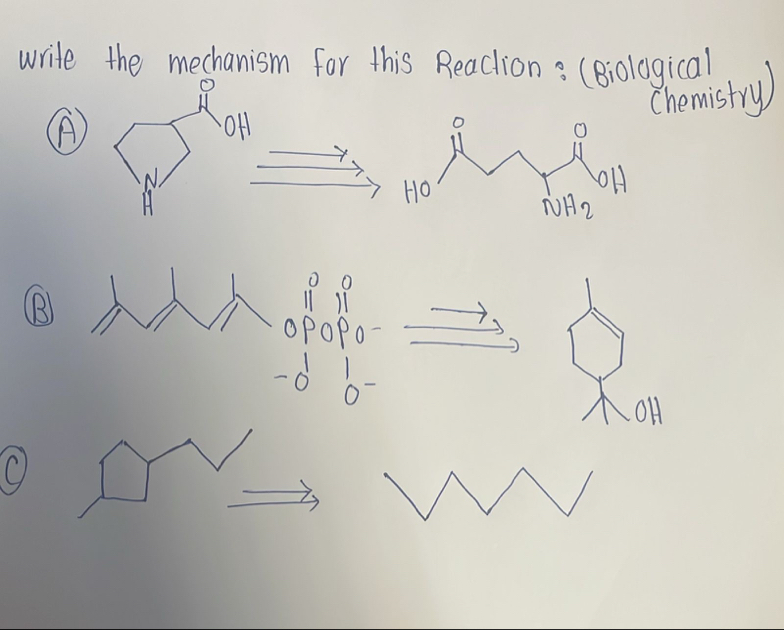 write the mechanism for this Reaction : (Biological
Chemistry)
A
O
OH
N
H
O
HO
O
OH
NH2
B
O O
OPOPO-
-O
O-
OH
C